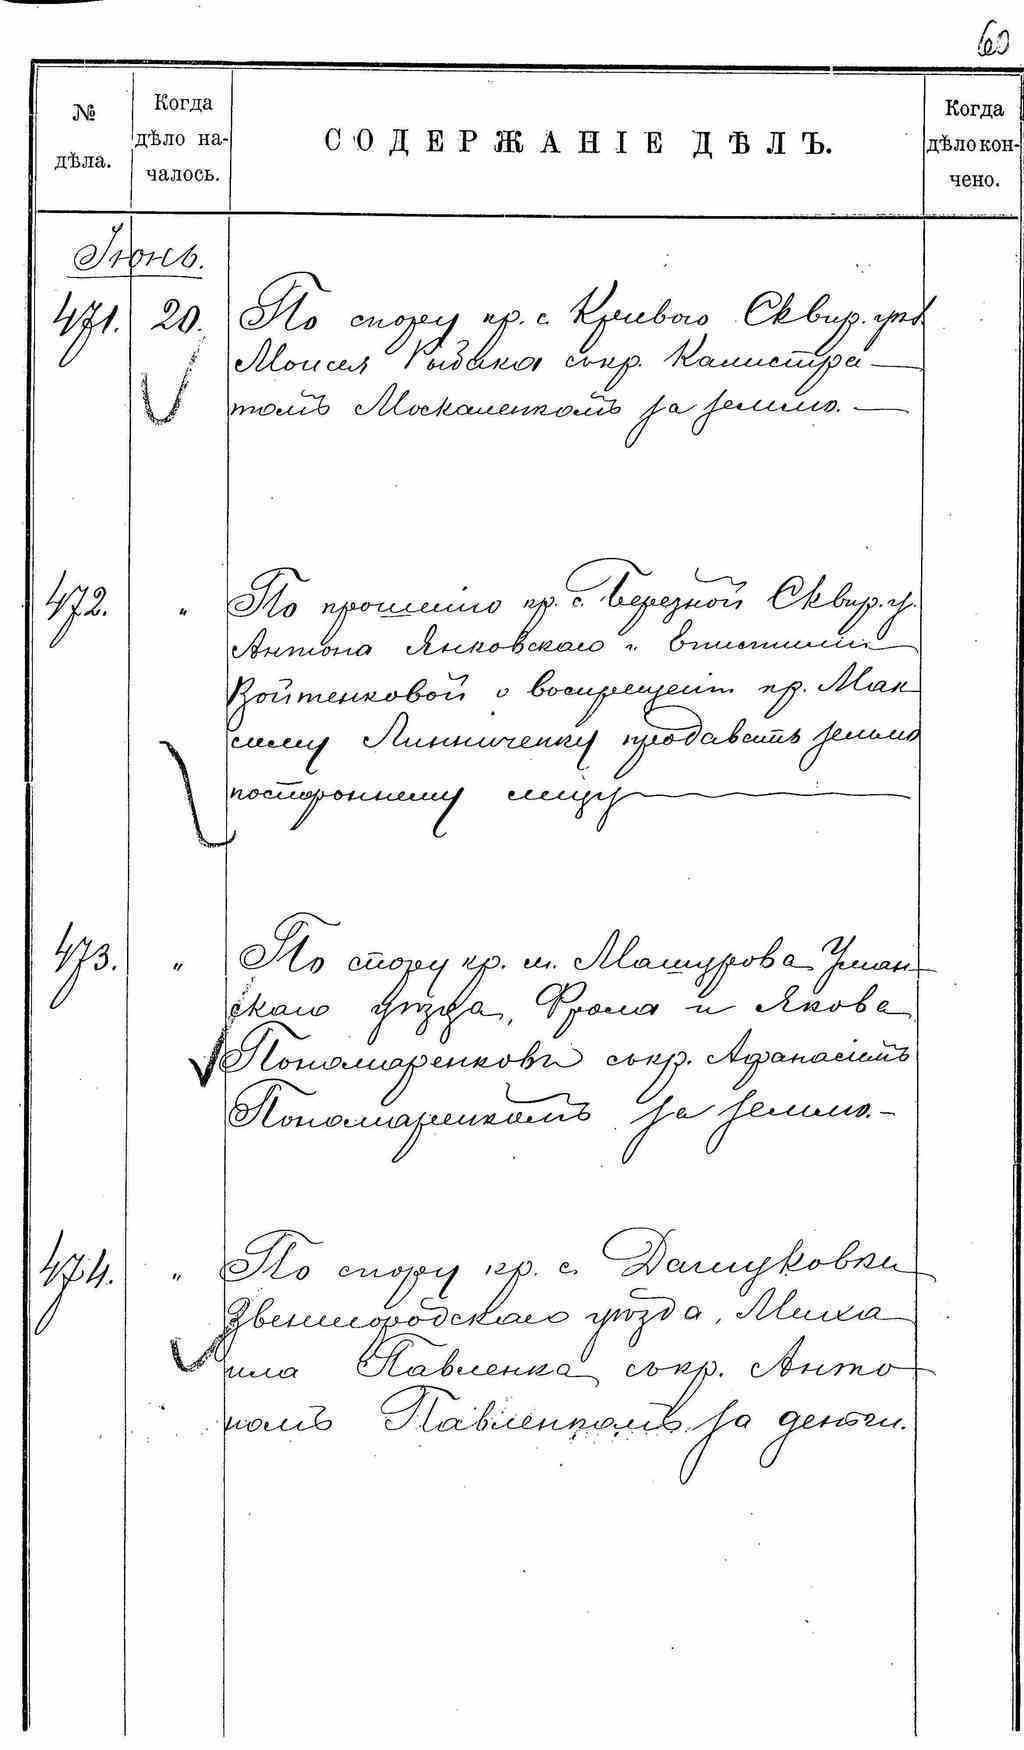 60
№ дѣла.
Когда дѣло на-
чалось.
СОДЕРЖАНІЕ ДѢЛЪ.
Когда дѣло кон-
чено.
Іюнь.
471. 20. По спору кр. с. Кривого Сквир. уѣз.
Моисея Рыбака съ кр. Калистра-
томъ Москаленкомъ за землю.
472. " По прошенію кр. с. Березной Сквир. у.
Антона Янковскаго и
Войтенковой о воспрещеніи кр. Мак
симу Линниченку продавать землю
постороннему лицу
473. " По спору кр. м. Машурова Уман-
скаго уѣзда, Фрола и Якова
Пономаренковы съ кр. Афанасіемъ
Пономаренкомъ за землю.-
474. " По спору кр. с. Дашуковки
Звенигородскаго уѣзда, Миха
ила Павленка съ кр. Анто
номъ Павленкомъ за деньги.